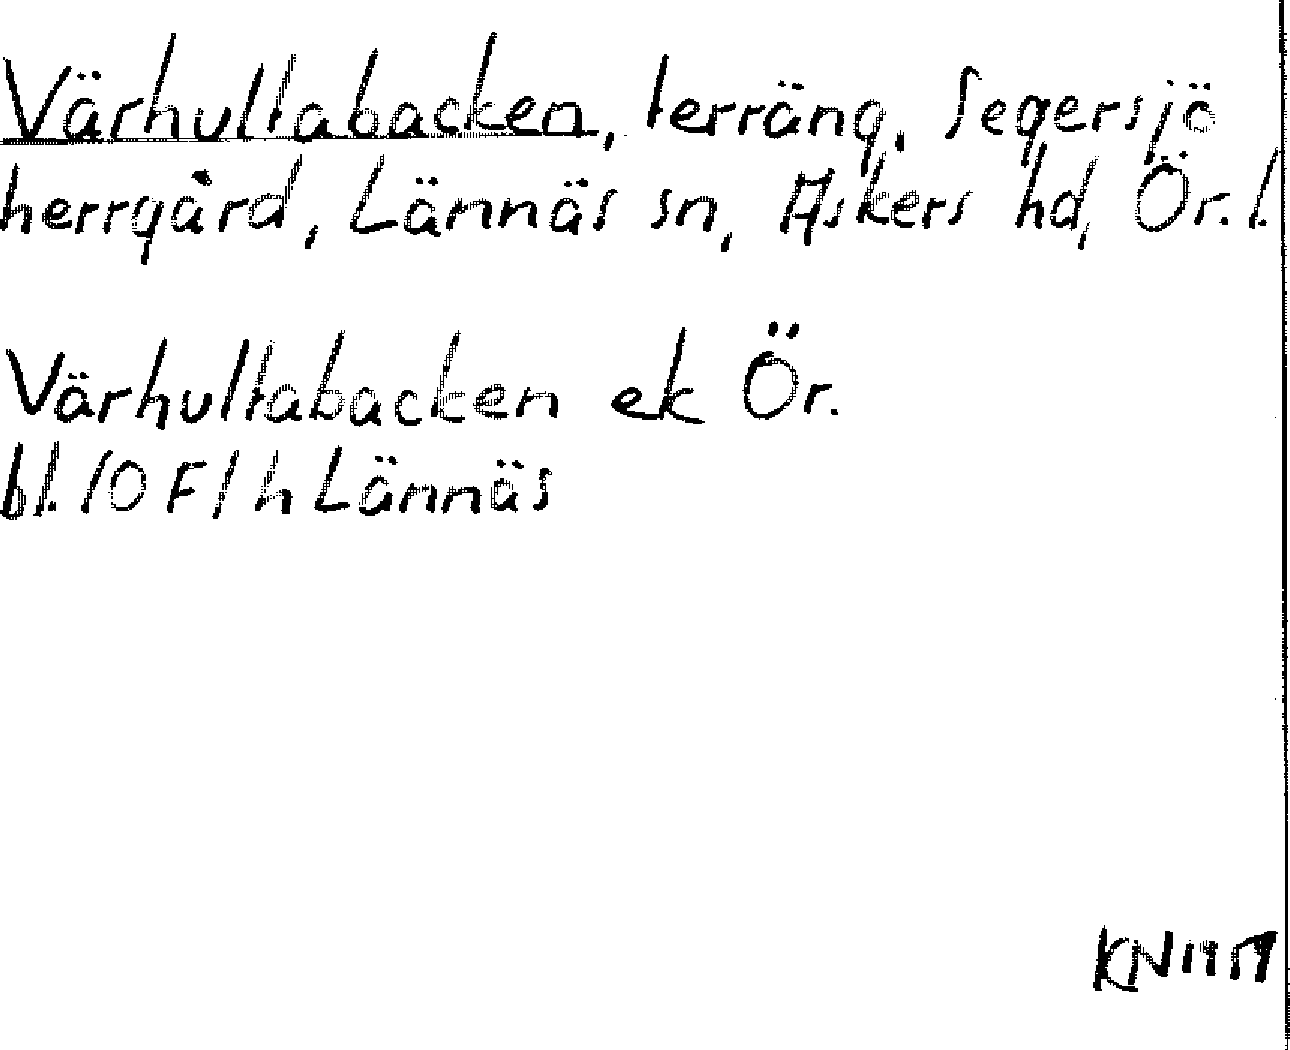 Värhultabacken, terräng, Segersjö
herrgård, Lännäs sn, Askers hd, Ör. l.
Värhultabacken ek Ör.
bl. 10 F 1 h Lännäs